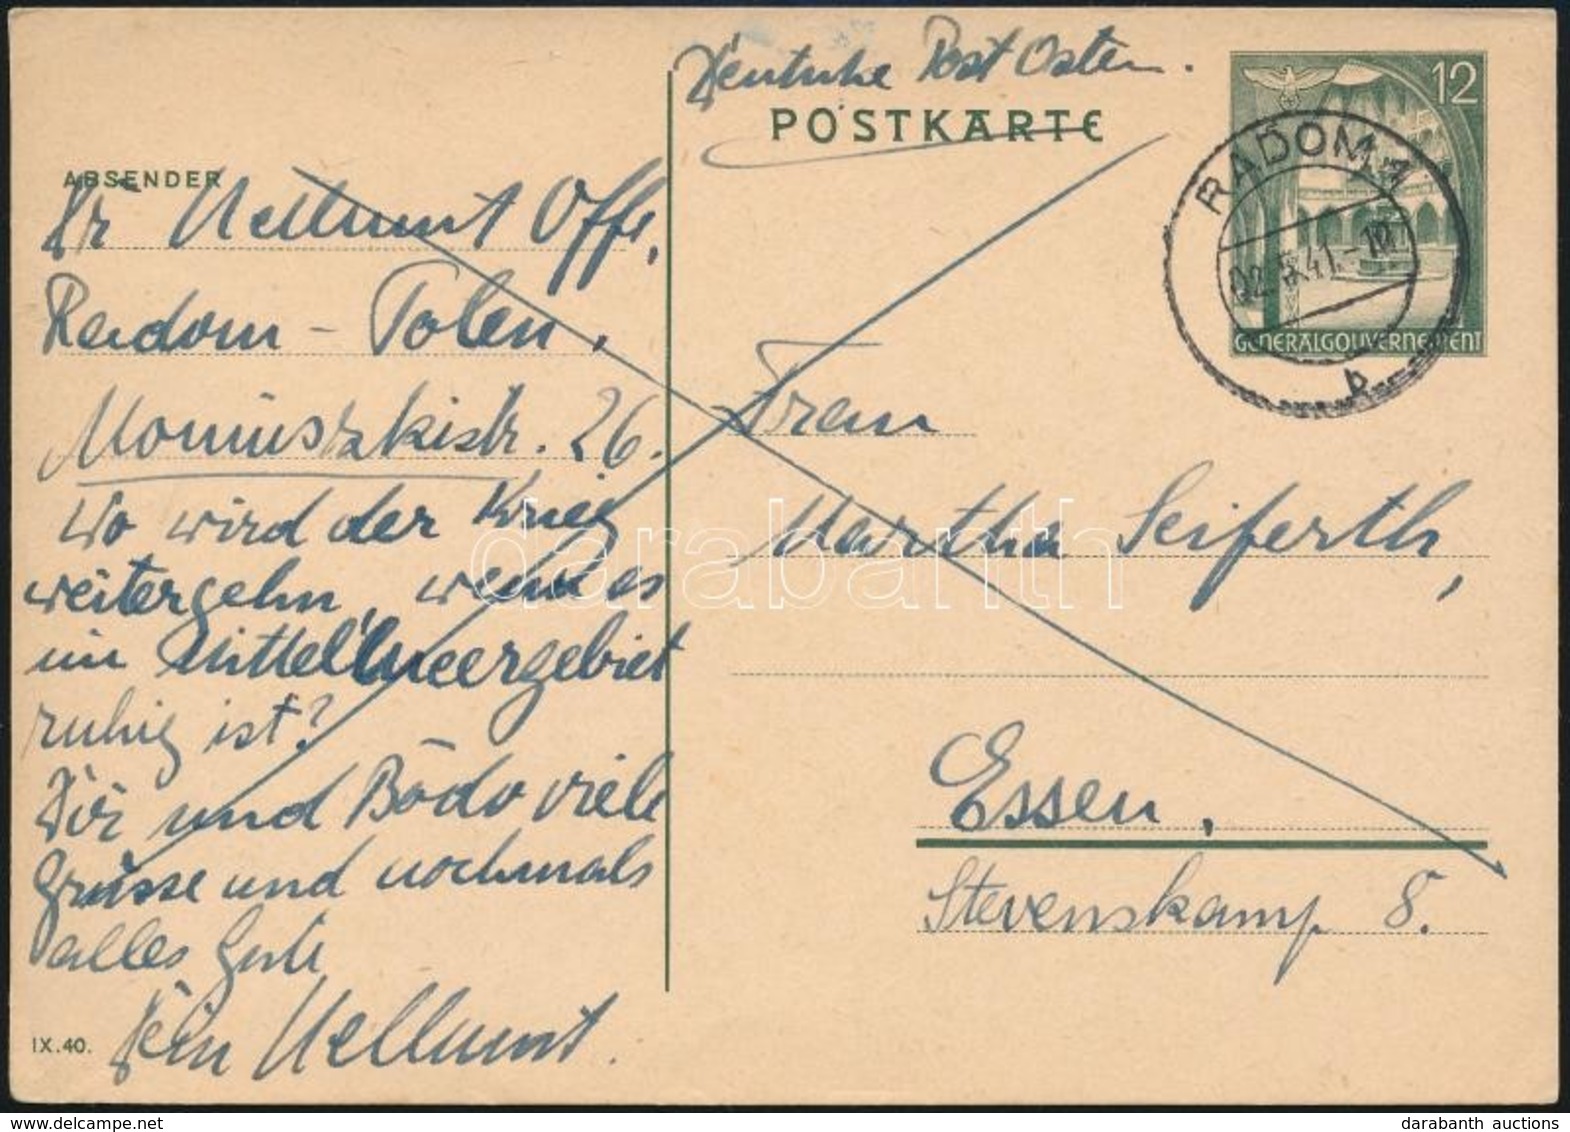 Deutsche Post Osten.
POSTKARTE
12
RADOM 1
02. 41.-10
b
GENERALGOUVERNEMENT
ABSENDER
Dr Hellmut Offe,
Radom - Polen,
Moniuszkistr. 26.
Wo wird der Krieg
weitergehn, wenn es
im Mittelmeergebiet
ruhig ist?
Dir und Bodo viele
Grüsse und nochmals
alles Gute
Dein Hellmut.
IX.40.
Frau
Martha Seiferth,
Essen,
Stevenskamp 8.
darabanth
darabanth auctions